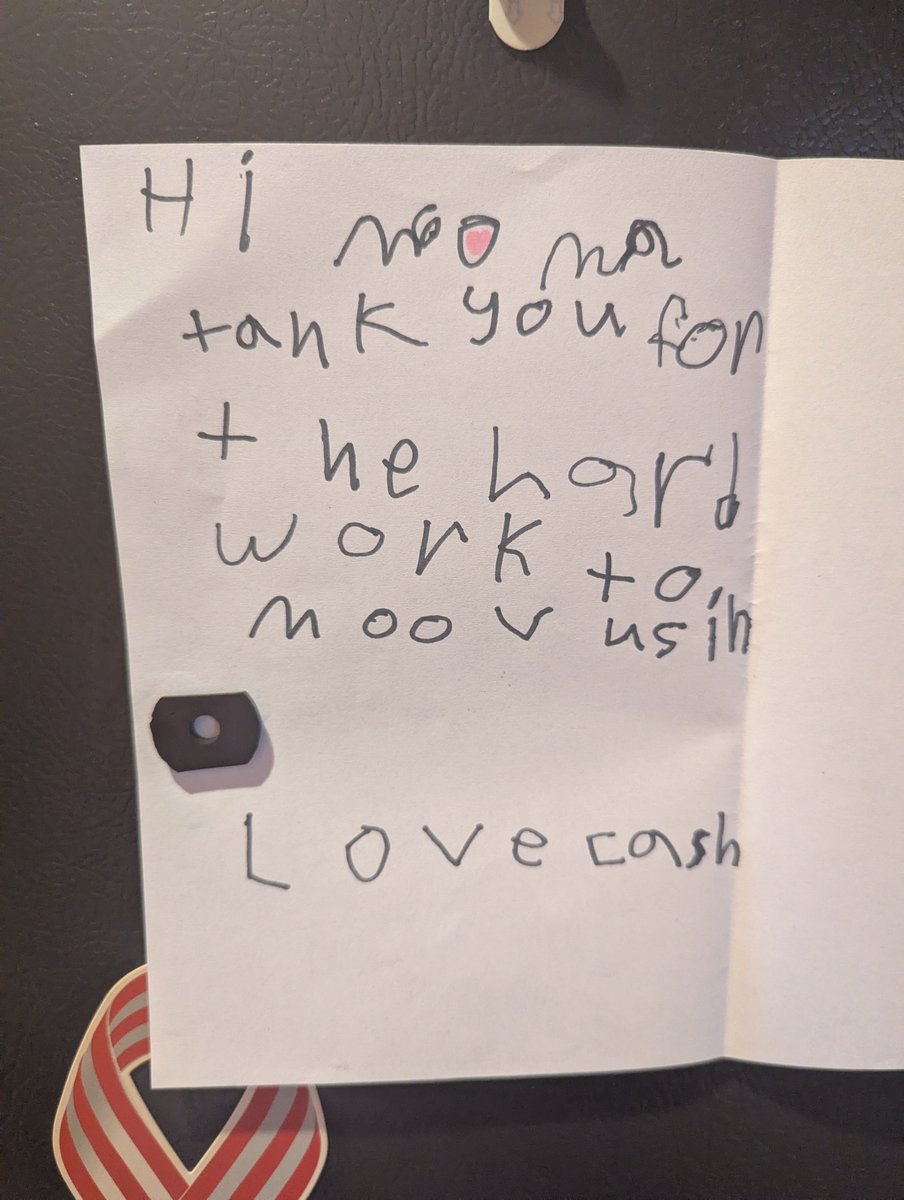 Hi
tank you for
the hard
work to
moov us in
Love cash